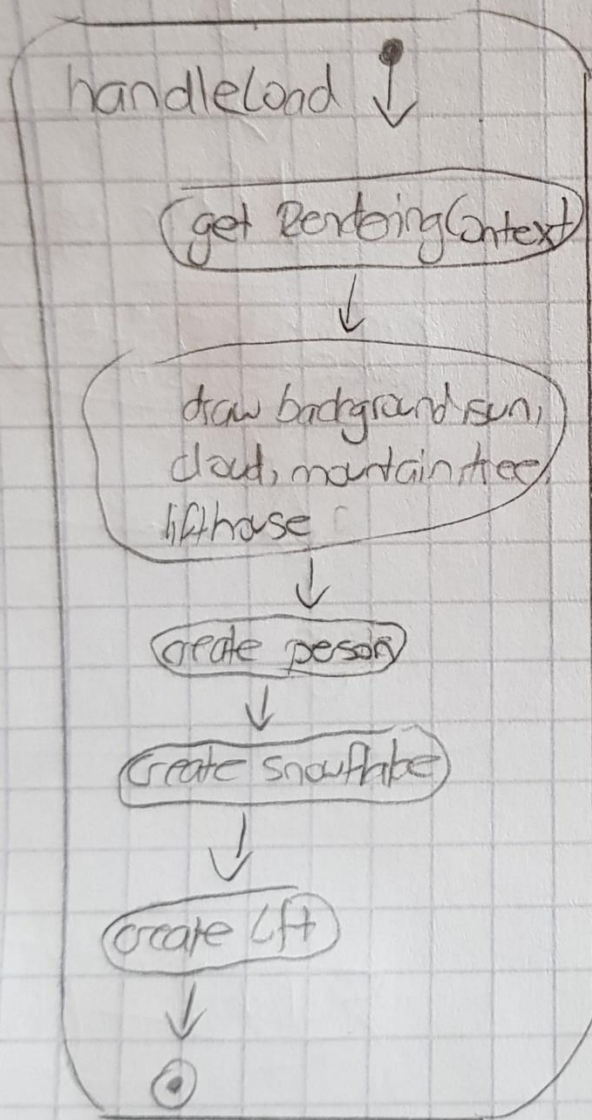 handleLoad
get RenderingContext
draw background, sun,
cloud, mountain, tree,
lifthouse
create person
create snowflake
create Lift